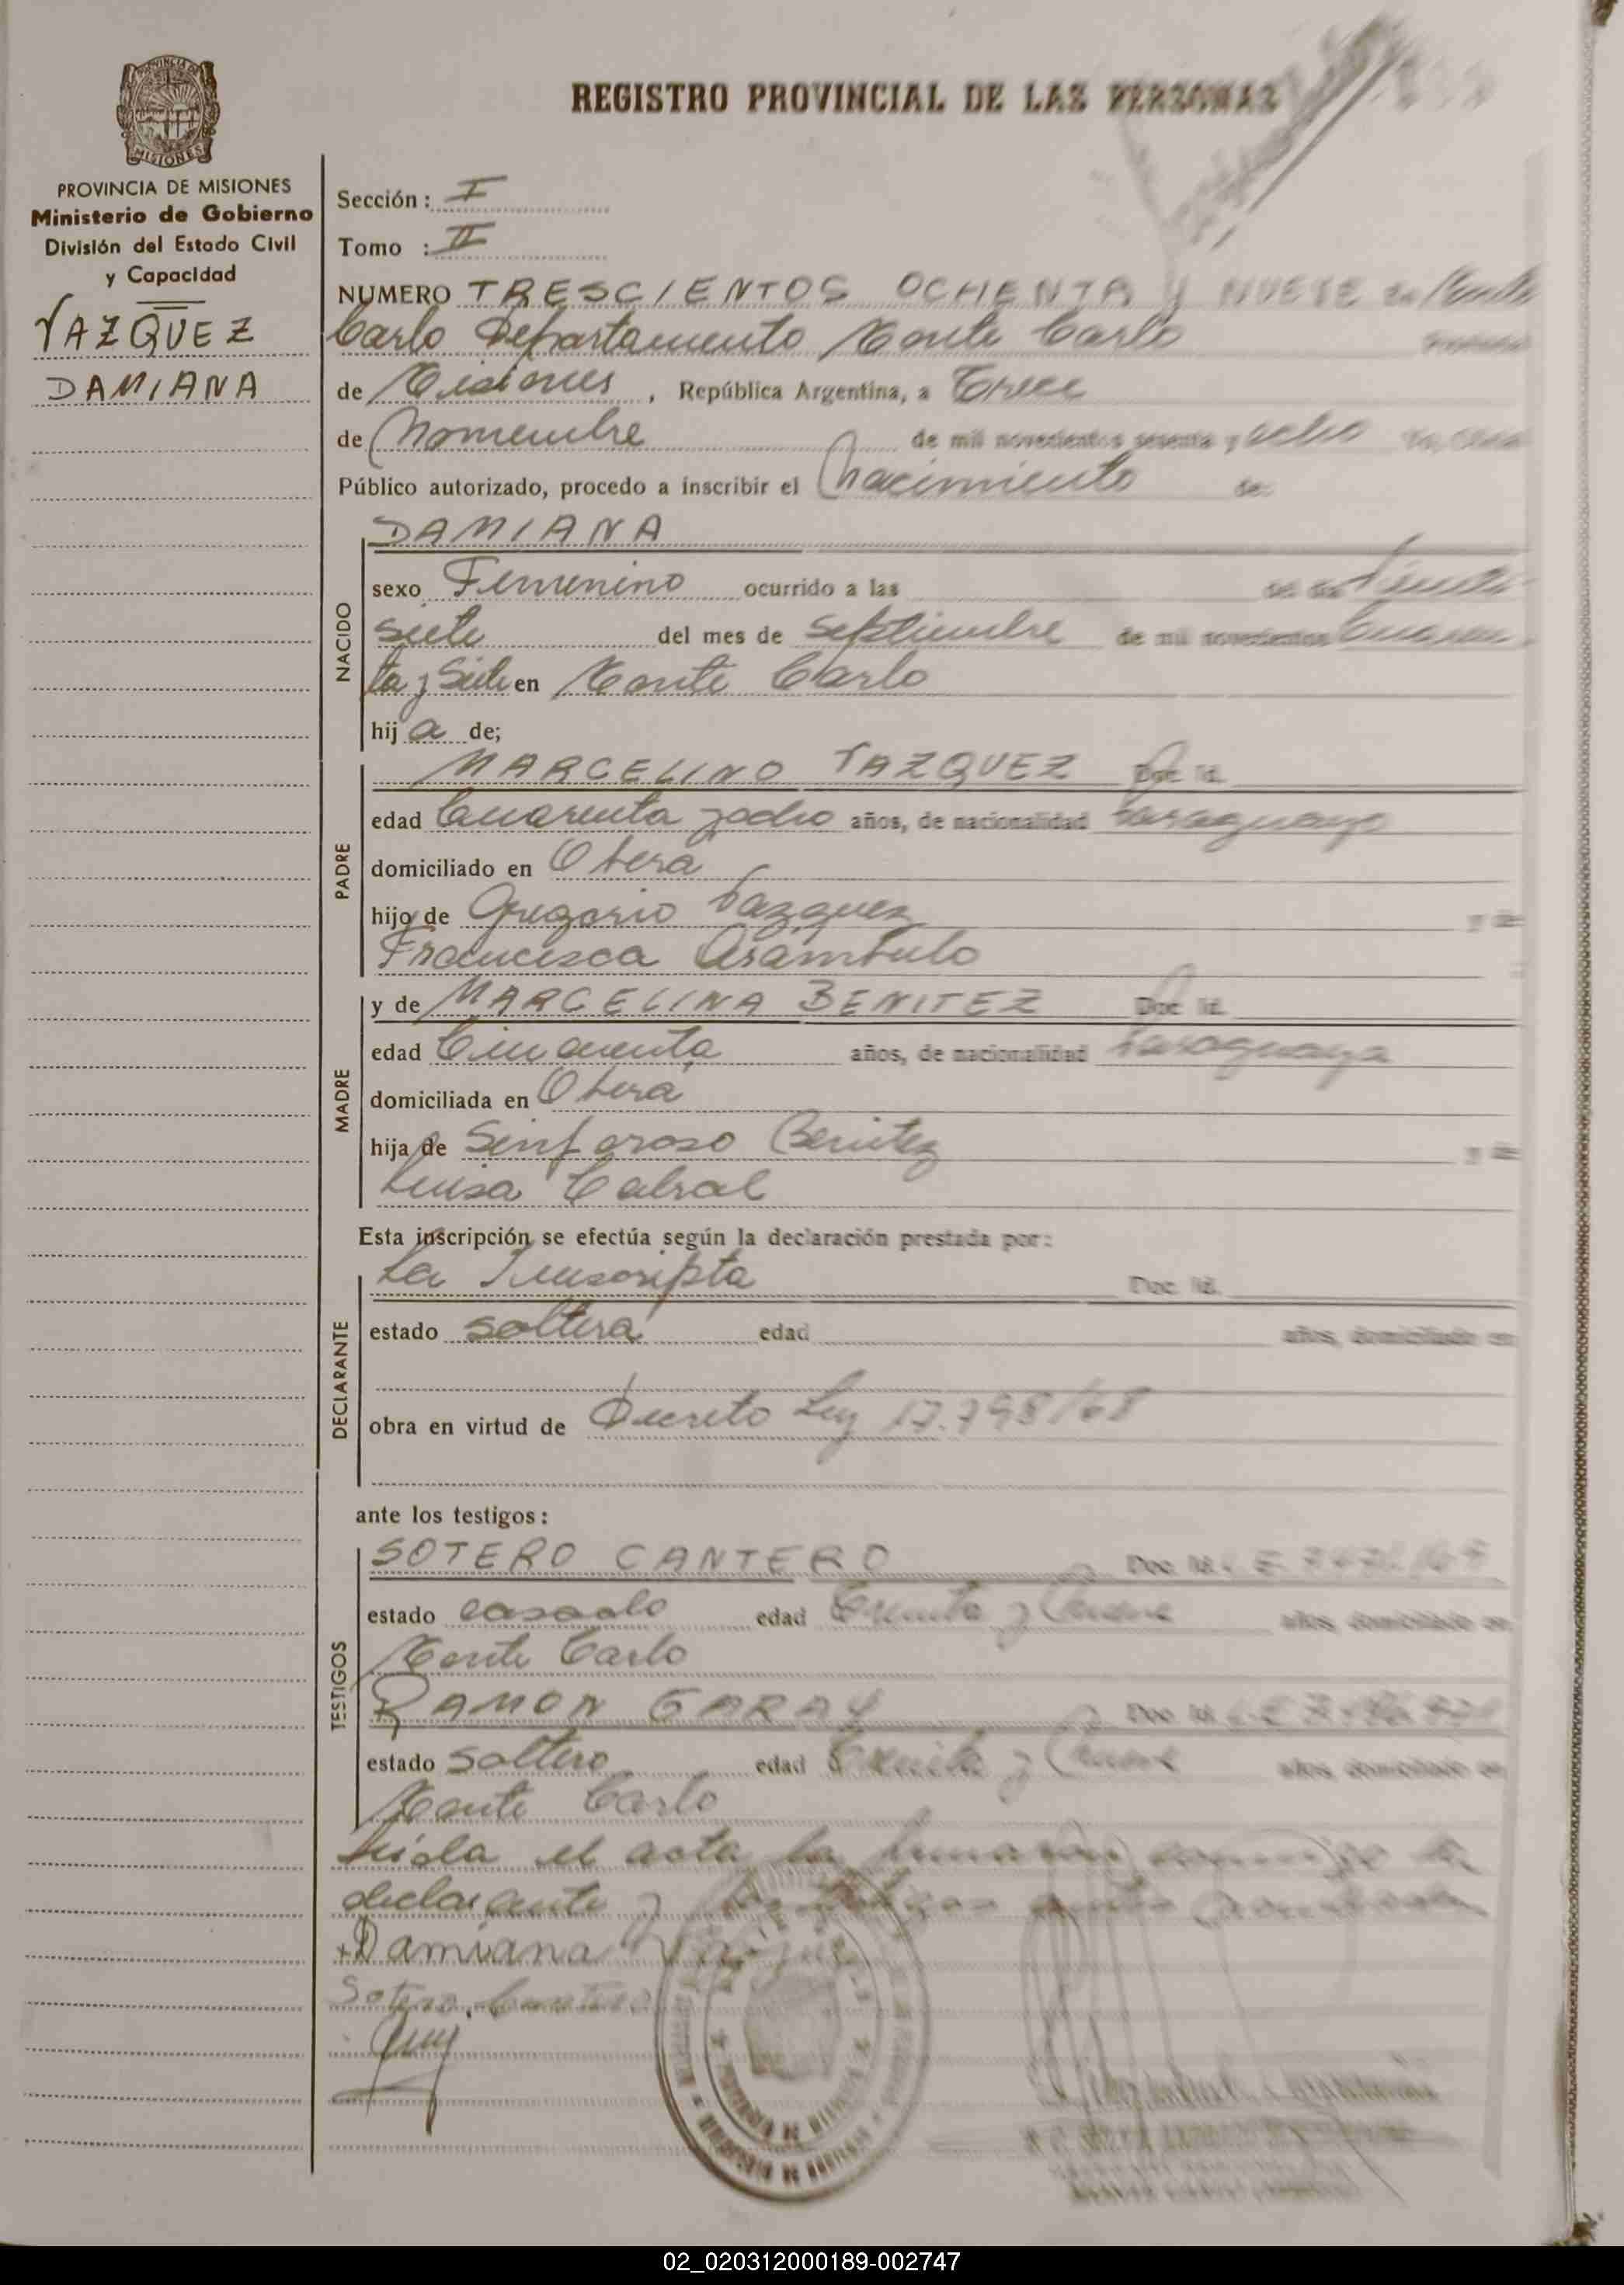 REGISTRO PROVINCIAL DE LAS PERSONAS
PROVINCIA DE MISIONES
Ministerio de Gobierno
División del Estado Civil
y Capacidad
VAZQUEZ
DAMIANA
Sección: I
Tomo : II
NUMERO TRESCIENTOS OCHENTA Y NUEVE En Monte
Carlo Departamento Monte Carlo
de Misiones, República Argentina, a Trece
de Noviembre de mil novecientos sesenta y ocho
Público autorizado, procedo a inscribir el Nacimiento de:
NACIDO
DAMIANA
sexo Femenino ocurrido a las del día Veinti
siete del mes de Septiembre de mil novecientos Cuaren
ta y Siete en Monte Carlo
hija de;
PADRE
MARCELINO VAZQUEZ Doc. Id.
edad Cuarenta y ocho años, de nacionalidad Paraguayo
domiciliado en Obera
hijo de Gregorio Vazquez y de
Francisca Arambulo
MADRE
y de MARCELINA BENITEZ Doc. Id.
edad Cincuenta años, de nacionalidad Paraguaya
domiciliada en Obera
hija de Sinforoso Benitez y de
Luisa Cabral
Esta inscripción se efectúa según la declaración prestada por:
DECLARANTE
La Inscripta Doc. Id.
estado soltera edad años, domiciliado en
obra en virtud de Decreto Ley 17.798/68
ante los testigos:
TESTIGOS
SOTERO CANTERO Doc. Id.
estado casado edad Treinta y años, domiciliado en
Monte Carlo
RAMON GARAY Doc. Id.
estado Soltero edad Treinta y años, domiciliado en
Monte Carlo
Leida el acta la firman conmigo la
declarante y
Damiana Vazquez
Sotero Cantero
02_020312000189-002747